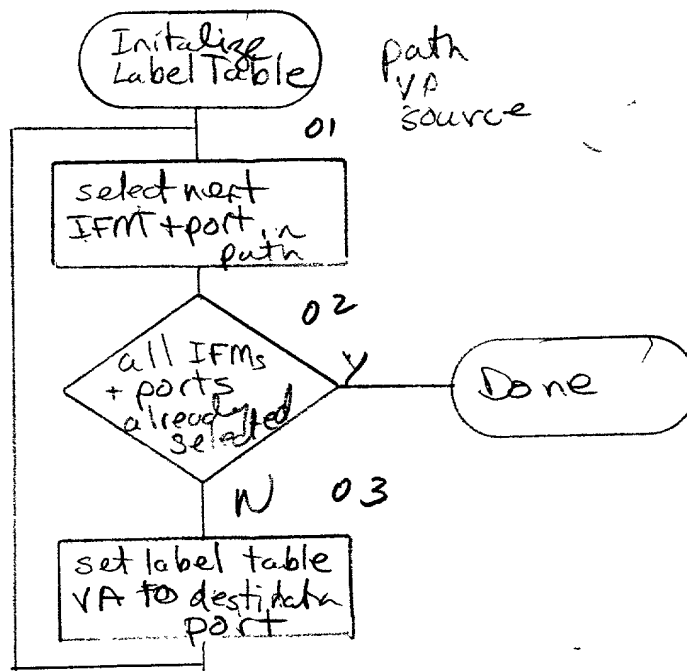 Initalize
Label Table
path
VA
source
01
select next
IFM + port in
path
02
all IFMs
+ ports
already
selected
Y
Done
N
03
set label table
VA to destidata
port